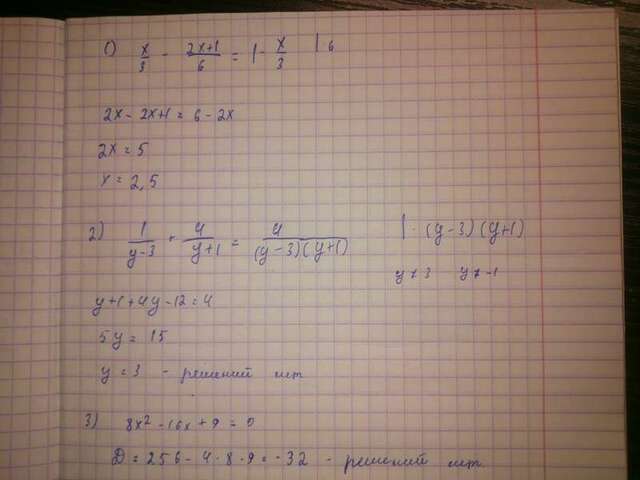 1) x/3 - 2x+1/6 = 1 - x/3 | 6
2x - 2x+1 = 6 - 2x
2x = 5
x = 2,5
2) 1/y-3 + 4/y+1 = 4/(y-3)(y+1) | · (y-3)(y+1)
y ≠ 3 y ≠ -1
y+1+4y-12=4
5y = 15
y = 3 - решений нет
3) 8x² - 16x + 9 = 0
D = 256 - 4 · 8 · 9 = -32 - решений нет